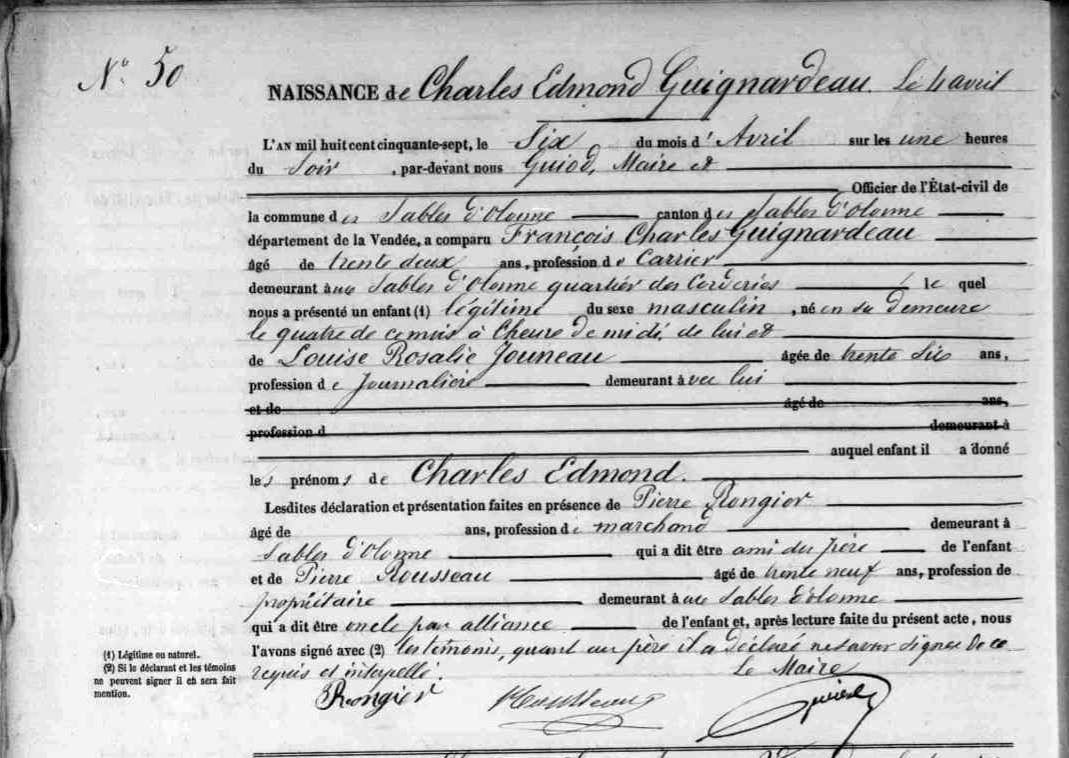 N° 50
NAISSANCE de Charles Edmond Guignardeau. Le 4 avril
L'AN mil huit cent cinquante-sept, le Six du mois d'Avril sur les une heures
du Soir, par-devant nous Guiod, Maire et
Officier de l'État-civil de
la commune des Sables d'Olonne canton des Sables d'Olonne
département de la Vendée, a comparu François Charles Guignardeau
âgé de trente deux ans, profession de Carrier
demeurant aux Sables d'Olonne quartier des Corderies le quel
nous a présenté un enfant (1) légitime du sexe masculin, né en sa demeure
le quatre de ce mois à l'heure de midi, de lui et
de Louise Rosalie Jouneau âgée de trente six ans,
profession de Journalière demeurant avec lui
et de âgé de ans,
profession d demeurant à
auquel enfant il a donné
les prénoms de Charles Edmond.
Lesdites déclaration et présentation faites en présence de Pierre Rongier
âgé de ans, profession de marchand demeurant à
Sables d'Olonne qui a dit être ami du père de l'enfant
et de Pierre Rousseau âgé de trente neuf ans, profession de
propriétaire demeurant aux Sables d'olonne
qui a dit être oncle par alliance de l'enfant et, après lecture faite du présent acte, nous
l'avons signé avec (2) les témoins, quant au père il a déclaré ne savoir signer de ce
requis et interpellé. Le Maire
Rongier Rousseau Guiod
(1) Légitime ou naturel.
(2) Si le déclarant et les témoins
ne peuvent signer il en sera fait
mention.